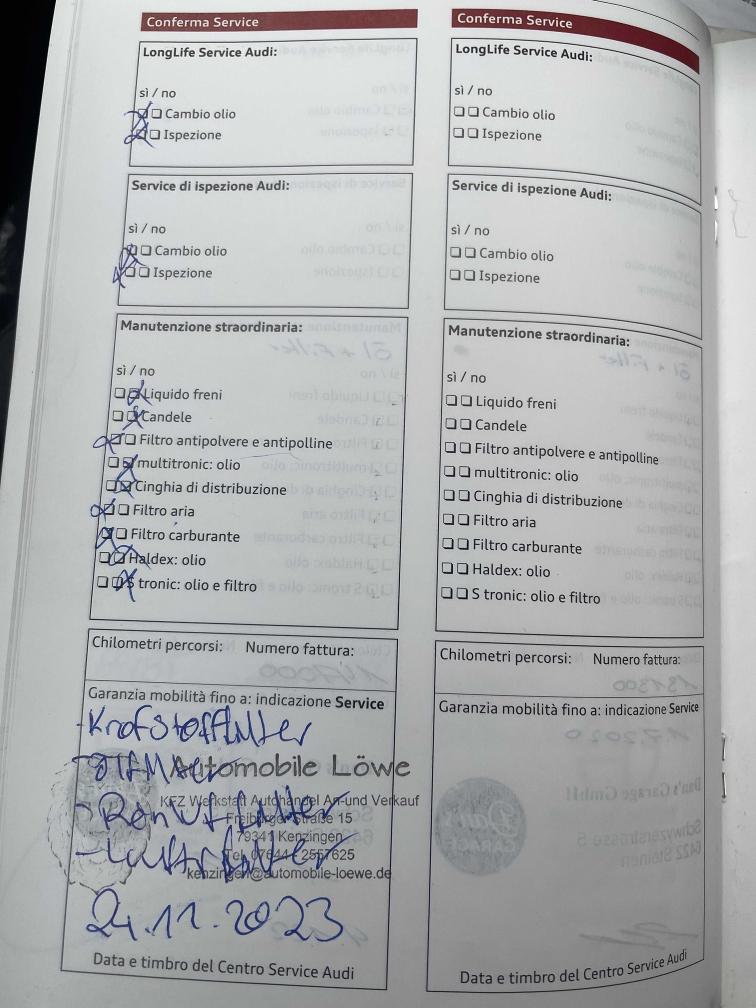 Conferma Service
LongLife Service Audi:
sì / no
Cambio olio
Ispezione
Service di ispezione Audi:
sì / no
Cambio olio
Ispezione
Manutenzione straordinaria:
sì / no
Liquido freni
Candele
Filtro antipolvere e antipolline
multitronic: olio
Cinghia di distribuzione
Filtro aria
Filtro carburante
Haldex: olio
S tronic: olio e filtro
Chilometri percorsi: Numero fattura:
Garanzia mobilità fino a: indicazione Service
Automobile Löwe
KFZ Werkstatt Autohandel An-und Verkauf
Freiburger Straße 15
79341 Kenzingen
Tel. 07644 - 2557625
kenzingen@automobile-loewe.de
24.11.2023
Data e timbro del Centro Service Audi
Conferma Service
LongLife Service Audi:
sì / no
Cambio olio
Ispezione
Service di ispezione Audi:
sì / no
Cambio olio
Ispezione
Manutenzione straordinaria:
sì / no
Liquido freni
Candele
Filtro antipolvere e antipolline
multitronic: olio
Cinghia di distribuzione
Filtro aria
Filtro carburante
Haldex: olio
S tronic: olio e filtro
Chilometri percorsi: Numero fattura:
Garanzia mobilità fino a: indicazione Service
Data e timbro del Centro Service Audi